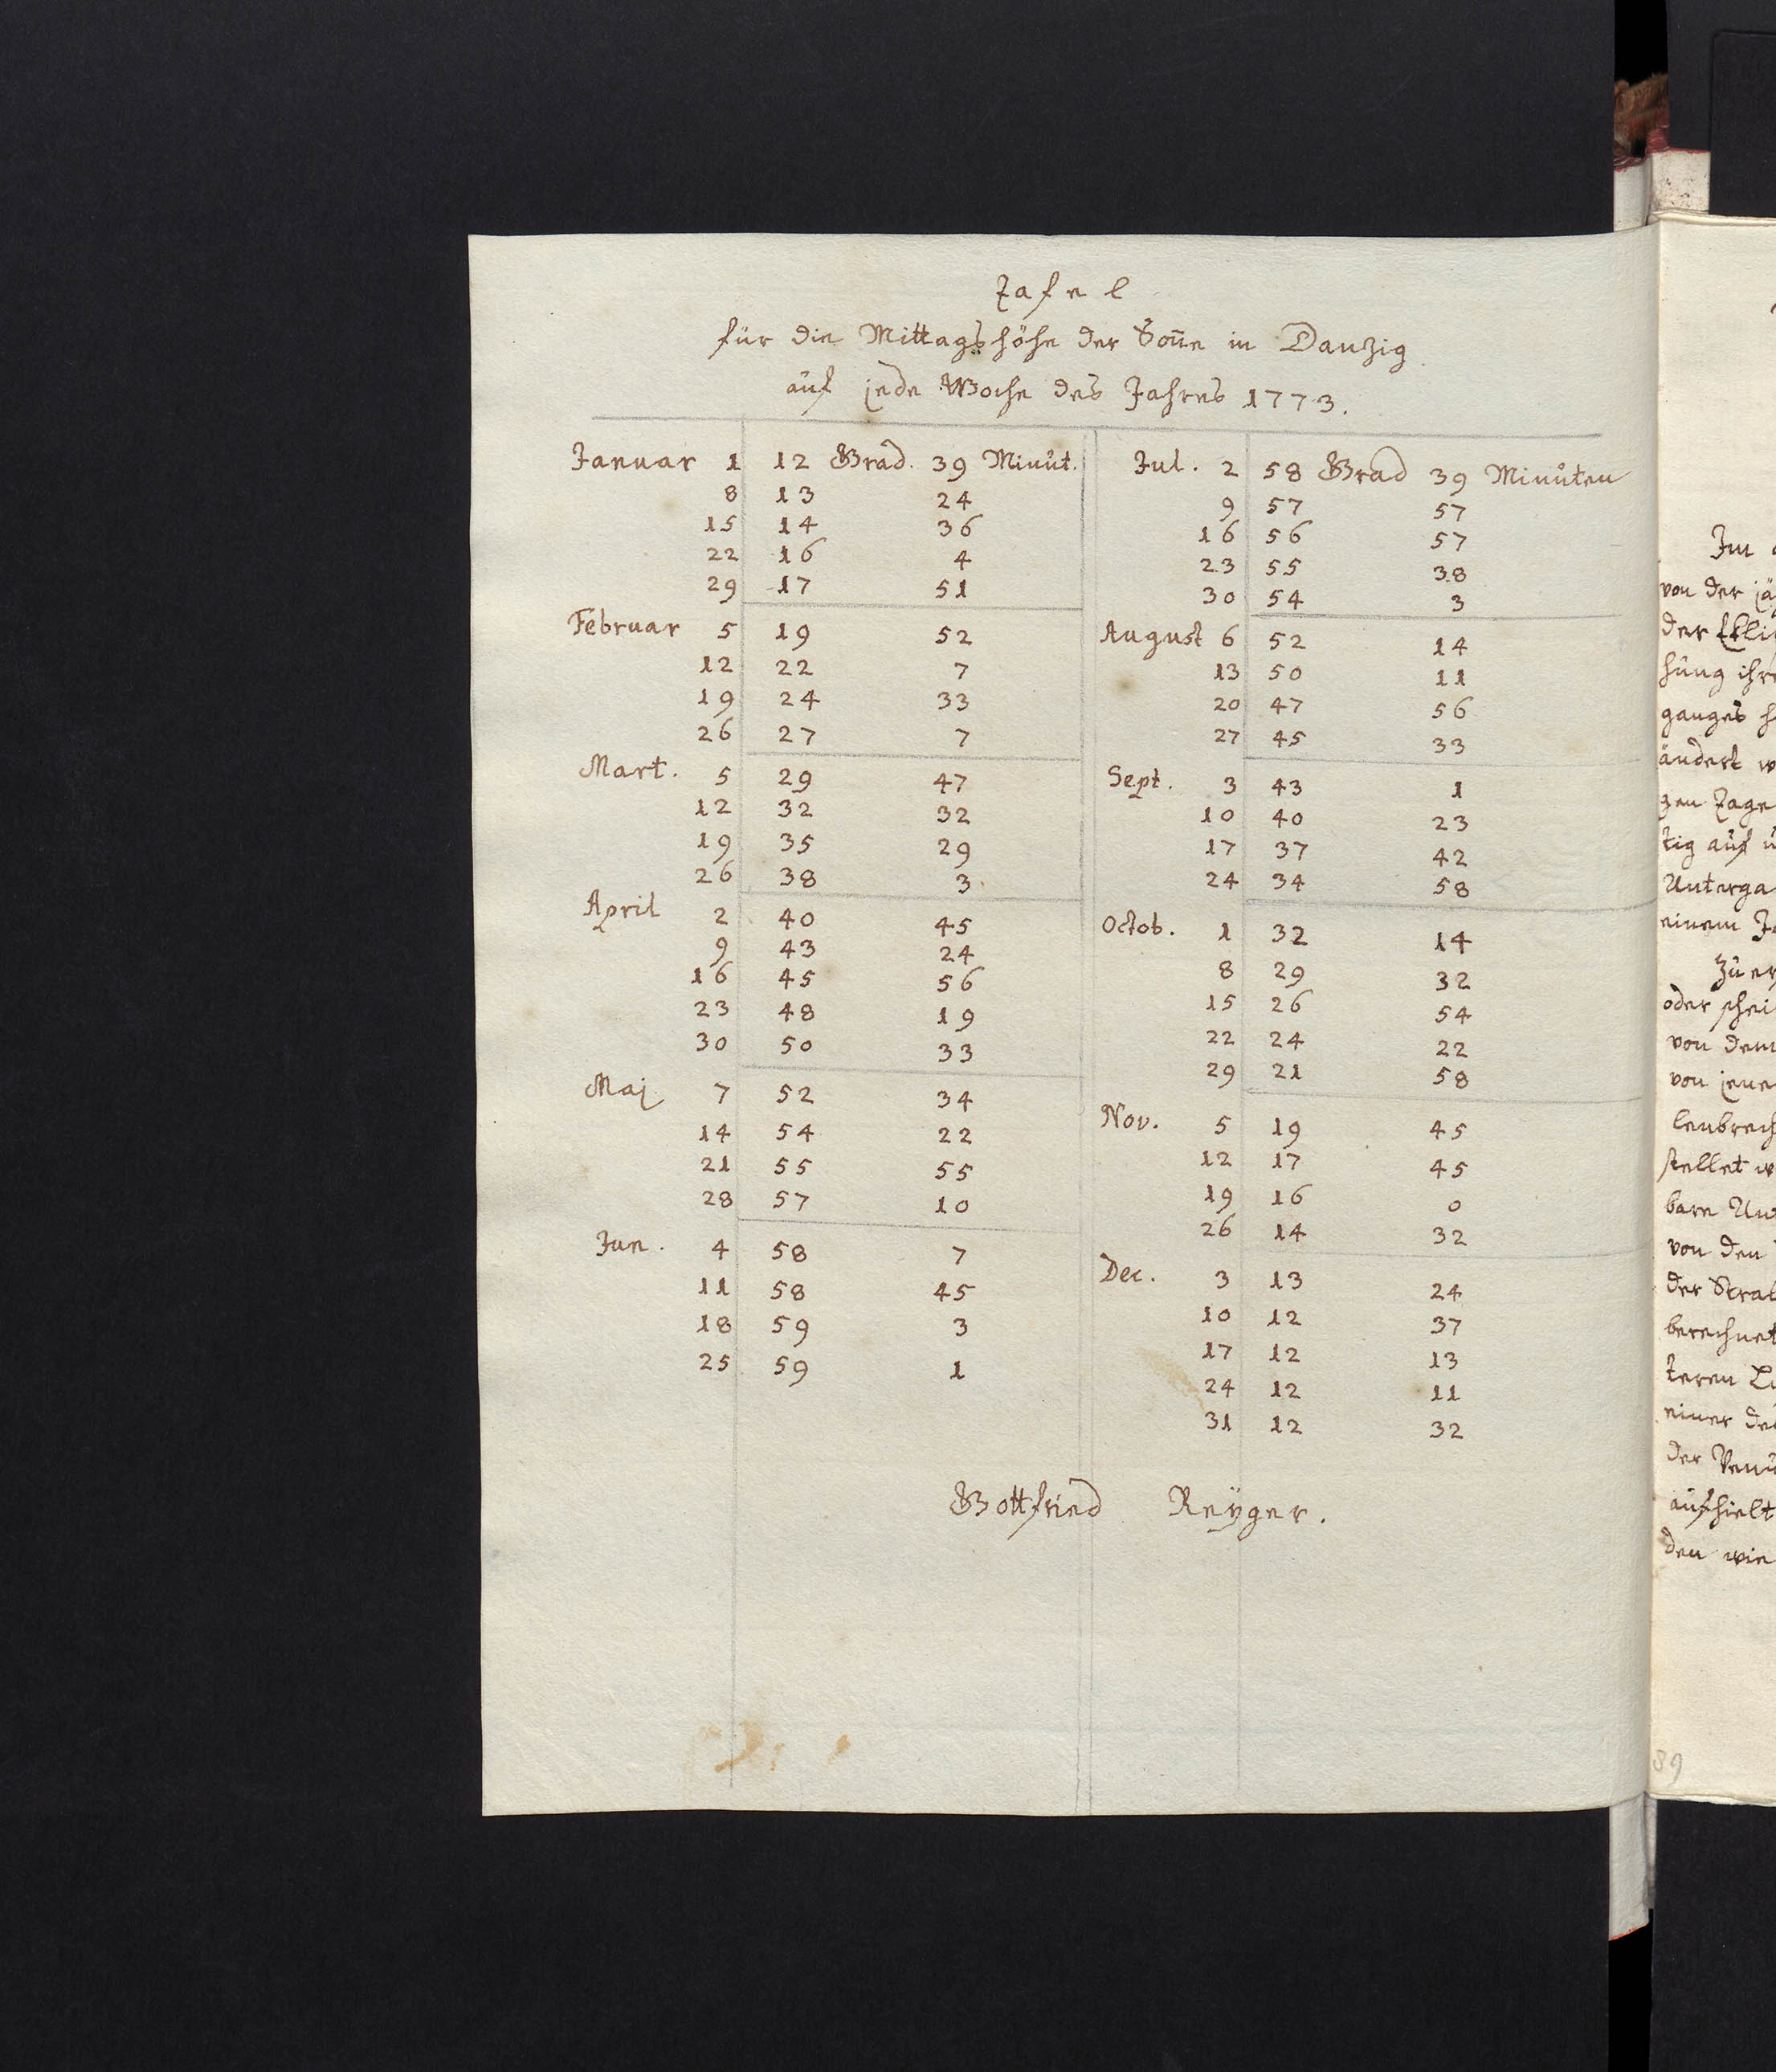 Tafel
für die Mittagshöhe der Soñe in Danzig
auf jede Woche des Jahres 1773.
Januar 1 12 Grad. 39 Minut.
8 13 24
15 14 36
22 16 4
29 17 51
Februar 5 19 52
12 22 7
19 24 33
26 27 7
Mart. 5 29 47
12 32 32
19 35 29
26 38 3
April 2 40 45
9 43 24
16 45 56
23 48 19
30 50 33
Maj 7 52 34
14 54 22
21 55 55
28 57 10
Jun. 4 58 7
11 58 45
18 59 3
25 59 1
Jul. 2 58 Grad 39 Minuten
9 57 57
16 56 57
23 55 38
30 54 3
August 6 52 14
13 50 11
20 47 56
27 45 33
Sept. 3 43 1
10 40 23
17 37 42
24 34 58
Octob. 1 32 14
8 29 32
15 26 54
22 24 22
29 21 58
Nov. 5 19 45
12 17 45
19 16 0
26 14 32
Dec. 3 13 24
10 12 37
17 12 13
24 12 11
31 12 32
Gottfried Reÿger.
Im
von der
der
hung
ganges
ändert
gen Tage
tig auf
Unterga
einem
Zu
oder
von dem
von
stellet
bare
von den
der
berechnet
teren
einer
der
aufhielt
den wie
89